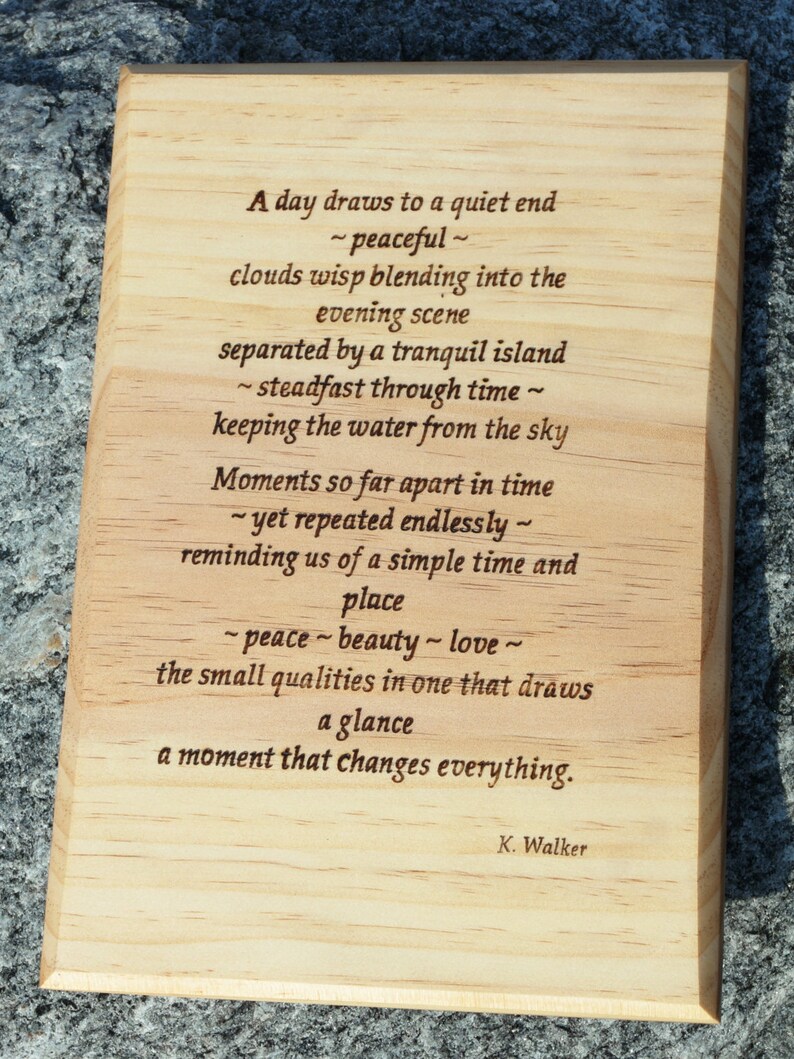 A day draws to a quiet end
~ peaceful ~
clouds wisp blending into the
evening scene
separated by a tranquil island
~ steadfast through time ~
keeping the water from the sky
Moments so far apart in time
~ yet repeated endlessly ~
reminding us of a simple time and
place
~ peace ~ beauty ~ love ~
the small qualities in one that draws
a glance
a moment that changes everything.
K. Walker